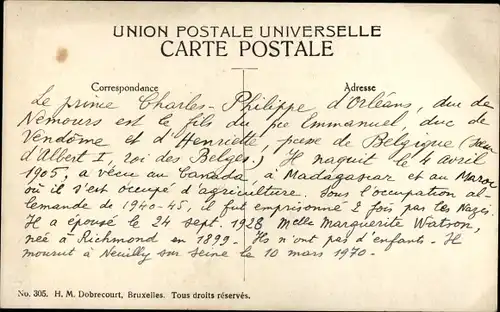 UNION POSTALE UNIVERSELLE
CARTE POSTALE
Correspondance Adresse
Le prince Charles-Philippe d'Orléans, duc de
Nemours est le fils du feu Emmanuel, duc de
Vendôme et d'Henriette, psse de Belgique (sœur
d'Albert I, roi des Belges.) Il naquit le 4 avril
1905, a vécu au Canada, à Madagascar et au Maroc
où il s'est occupé d'agriculture. Sous l'occupation al-
lemande de 1940-45, il fut emprisonné 2 fois par les Nazis.
Il a épousé le 24 sept. 1928 Melle Marguerite Watson,
née à Richmond en 1899. Ils n'ont pas d'enfants. Il
mourut à Neuilly sur Seine le 10 mars 1970.
No. 305. H. M. Dobrecourt, Bruxelles. Tous droits réservés.